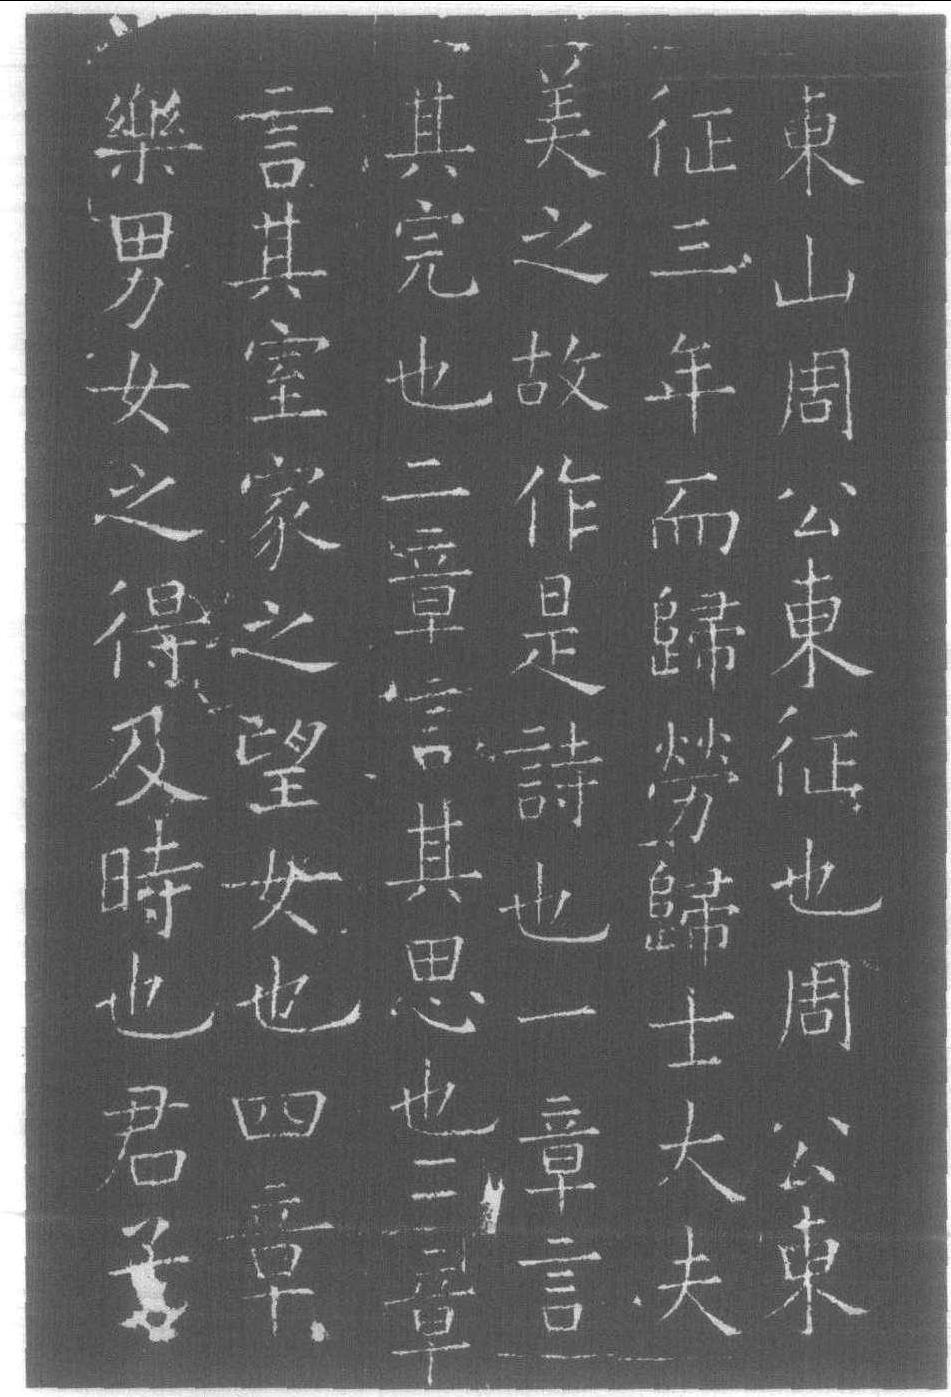 東山周公東征也周公東
征三年而歸勞歸士大夫
美之故作是詩也一章言
其完也二章言其思也三章
言其室家之望女也四章
樂男女之得及時也君子